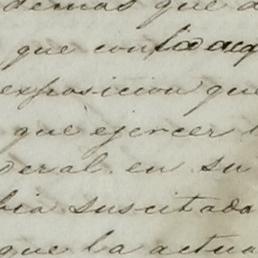 demas que a
que con
exposicion que
que ejercer
deral en su
bia suscitada
que la actua